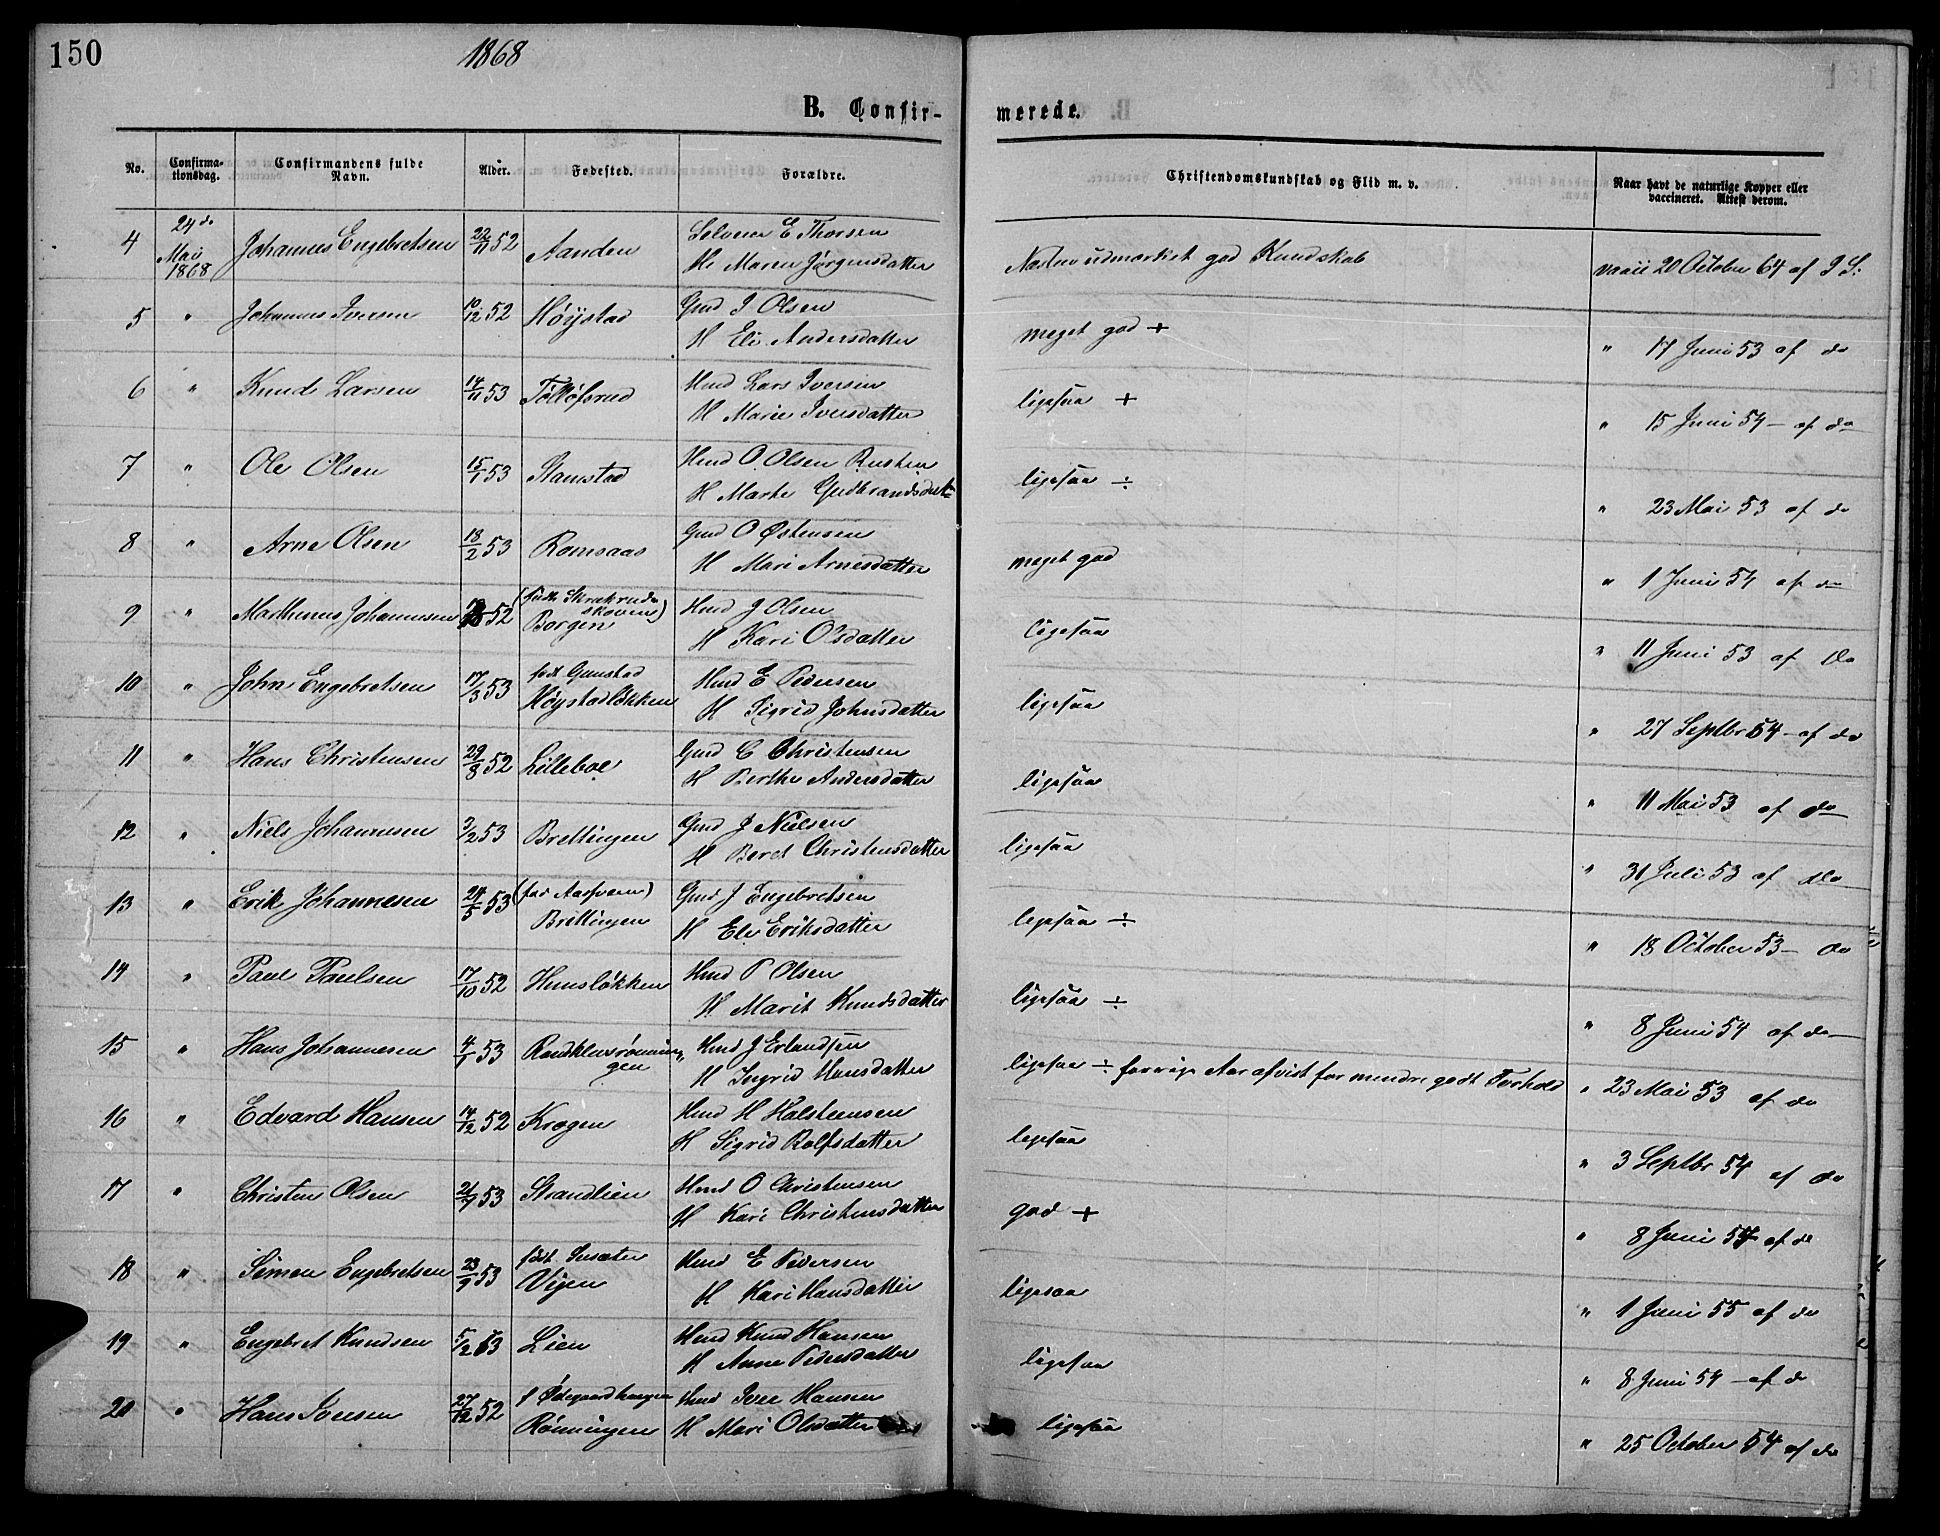 150
1868
B. Confir-
merede.
No.
Confirma-
tionsdag.
Confirmandens fulde
Navn.
Alder.
Fødested.
Forældre.
Christendomskundskab og Flid m. v.
Naar havt de naturlige Kopper eller
vaccineret. Attest derom.
4 24de Mai 1868 Johannes Engebretsen 22/11 52 Aanden E Thorsen
H Maren Jørgensdatter
Næsten udmærket god Kundskab
vacii 20 October 64 af I S:
5 " Johannes Iversen 10/12 52 Høystad Gmd I Olsen
H Eli Andersdatter
meget god +
" 17 Juni 53 af do
6 " Knud Larsen 14/11 53 Hmd Lars Iversen
H Marie Iversdatter
ligesaa +
" 15 Juni 54 – af do
7 " Ole Olsen 15/1 53 Stamstad Hmd O. Olsen Rusten
H Marte Gudbrandsdatt
ligesaa ÷
" 23 Mai 53 af do
8 " Arne Olsen 18/2 53 Romsaas Gmd O Østensen
H Mari Arnesdatter
meget god
" 1 Juni 54 af do
9 " Mathæus Johannesen 52 Borgen Hmd J Olsen
H Kari Olsdatter
ligesaa
" 11 Juni 53 af do
10 " John Engebretsen 17/3 53 født Gunstad
Høystadløkken Hmd E Pedersen
H Sigrid Johnsdatter
ligesaa
" 27 Septbr 54 – af do
11 " Hans Christensen 29/8 52 Lilleboe Gmd C Christensen
H Berthe Andersdatter
ligesaa
" 11 Mai 53 af do
12 " Niels Johannesen 3/2 53 Brettingen Gmd J Nielsen
H Beret Christensdatter
ligesaa
" 31 Juli 53 af do
13 " Erik Johannesen 24/5 53 Brettingen Gmd J Engebretsen
H Eli Eriksdatter
ligesaa ÷
" 18 October 53 – do
14 " Paul Paulsen 17/10 52 Hunsløkken Hmd P Olsen
H Marit Knudsdatter
ligesaa ÷
" 8 Juni 54 af do
15 " Hans Johannesen 4/1 53 Hmd J Erlandsen
H Ingrid Hansdatter
ligesaa ÷ forrige Aar afvist for mindre godt Forhold
" 23 Mai 53 af do
16 " Edvard Hansen 14/12 52 Krogen Hmd H Halsteensen
H Sigrid Rolfsdatter
ligesaa
" 3 Septbr 54 af do
17 " Christen Olsen 53 Strandlien Hmd O Christensen
H Kari Christensdatter
god +
" 8 Juni 54 af do
18 " Simen Engebretsen 23/9 53 født
Vigen Hmd E Pedersen
H Kari Hansdatter
ligesaa
" 1 Juni 55 af do
19 " Engebret Knudsen 5/2 53 Lien Hmd Knud Hansen
H Anne Pedersdatter
ligesaa
" 8 Juni 54 – af do
20 " Hans Iversen 27/12 52 f Ødegaardhaugen
Rønningen Hmd Iver Hansen
H Mari Olsdatter
ligesaa
" 25 October 54 af do